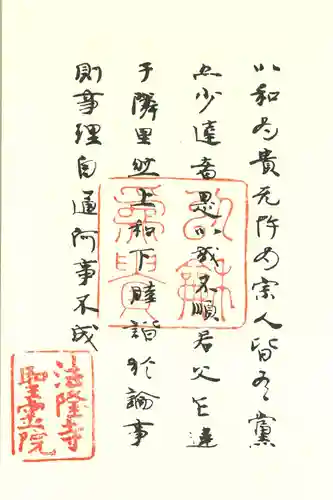 以和為貴无忤為宗人皆有黨
亦少達者是以或不順君父乍違
于隣里然上和下睦諧於論事
則事理自通何事不成
以和為貴
法隆寺
聖霊院